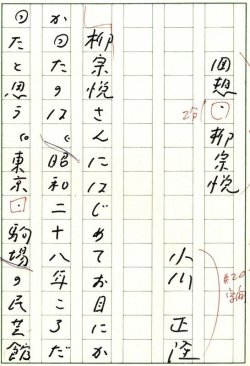 回想・柳宗悦
小川 正隆
柳宗悦さんにはじめてお目にか
か回たのは、昭和二十八年ころだ
回たと思う。東京・駒場の民芸館